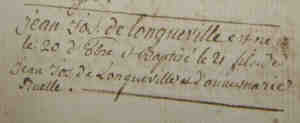 jean Jos. de longueville est né
le 20 d'8bre et Baptisé le 21 fils de
Jean Jos. de Longueville et d'anne marie
Ruelle.